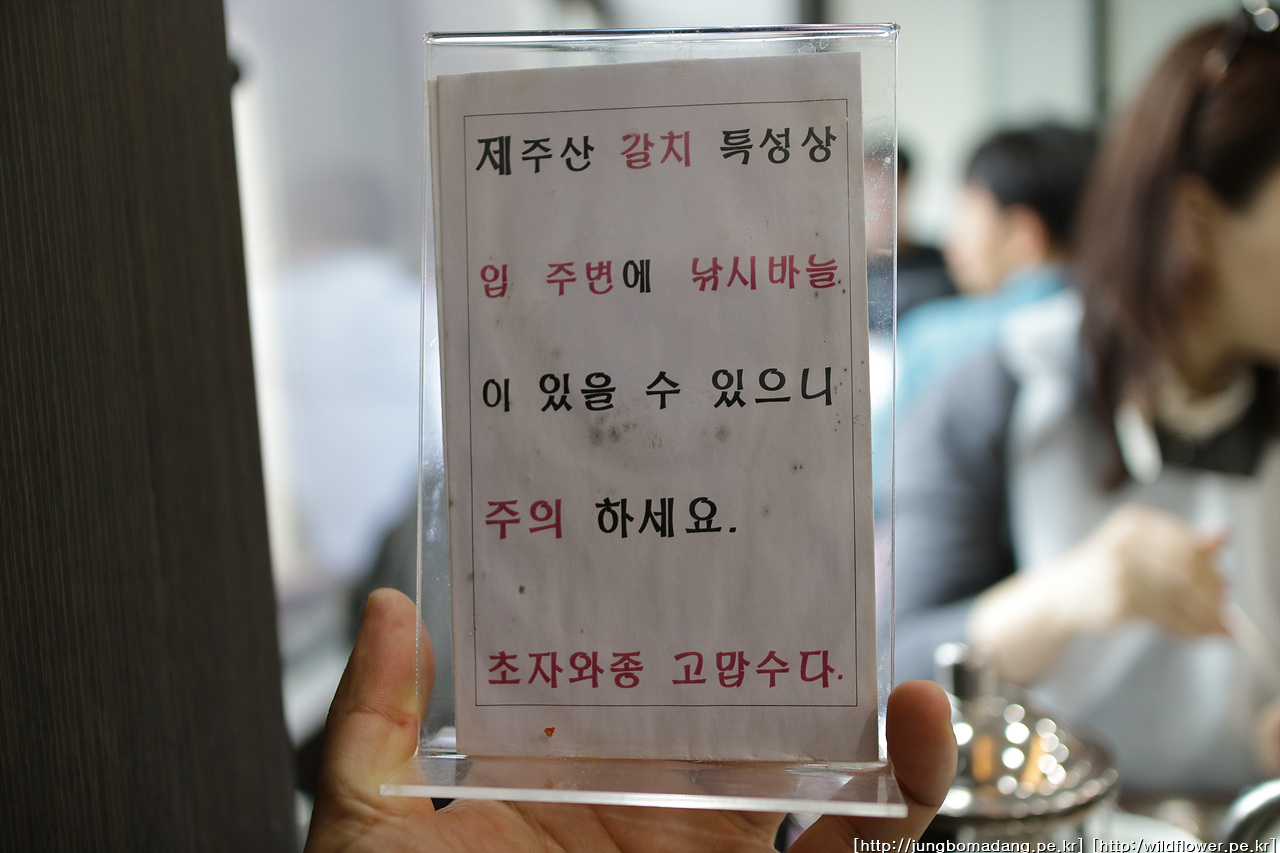 제주산 갈치 특성상
입 주변에 낚시바늘
이 있을 수 있으니
주의 하세요.
초자와종 고맙수다.
[http://jungbomadang.pe.kr] [http:/wildflower.pe.kr]